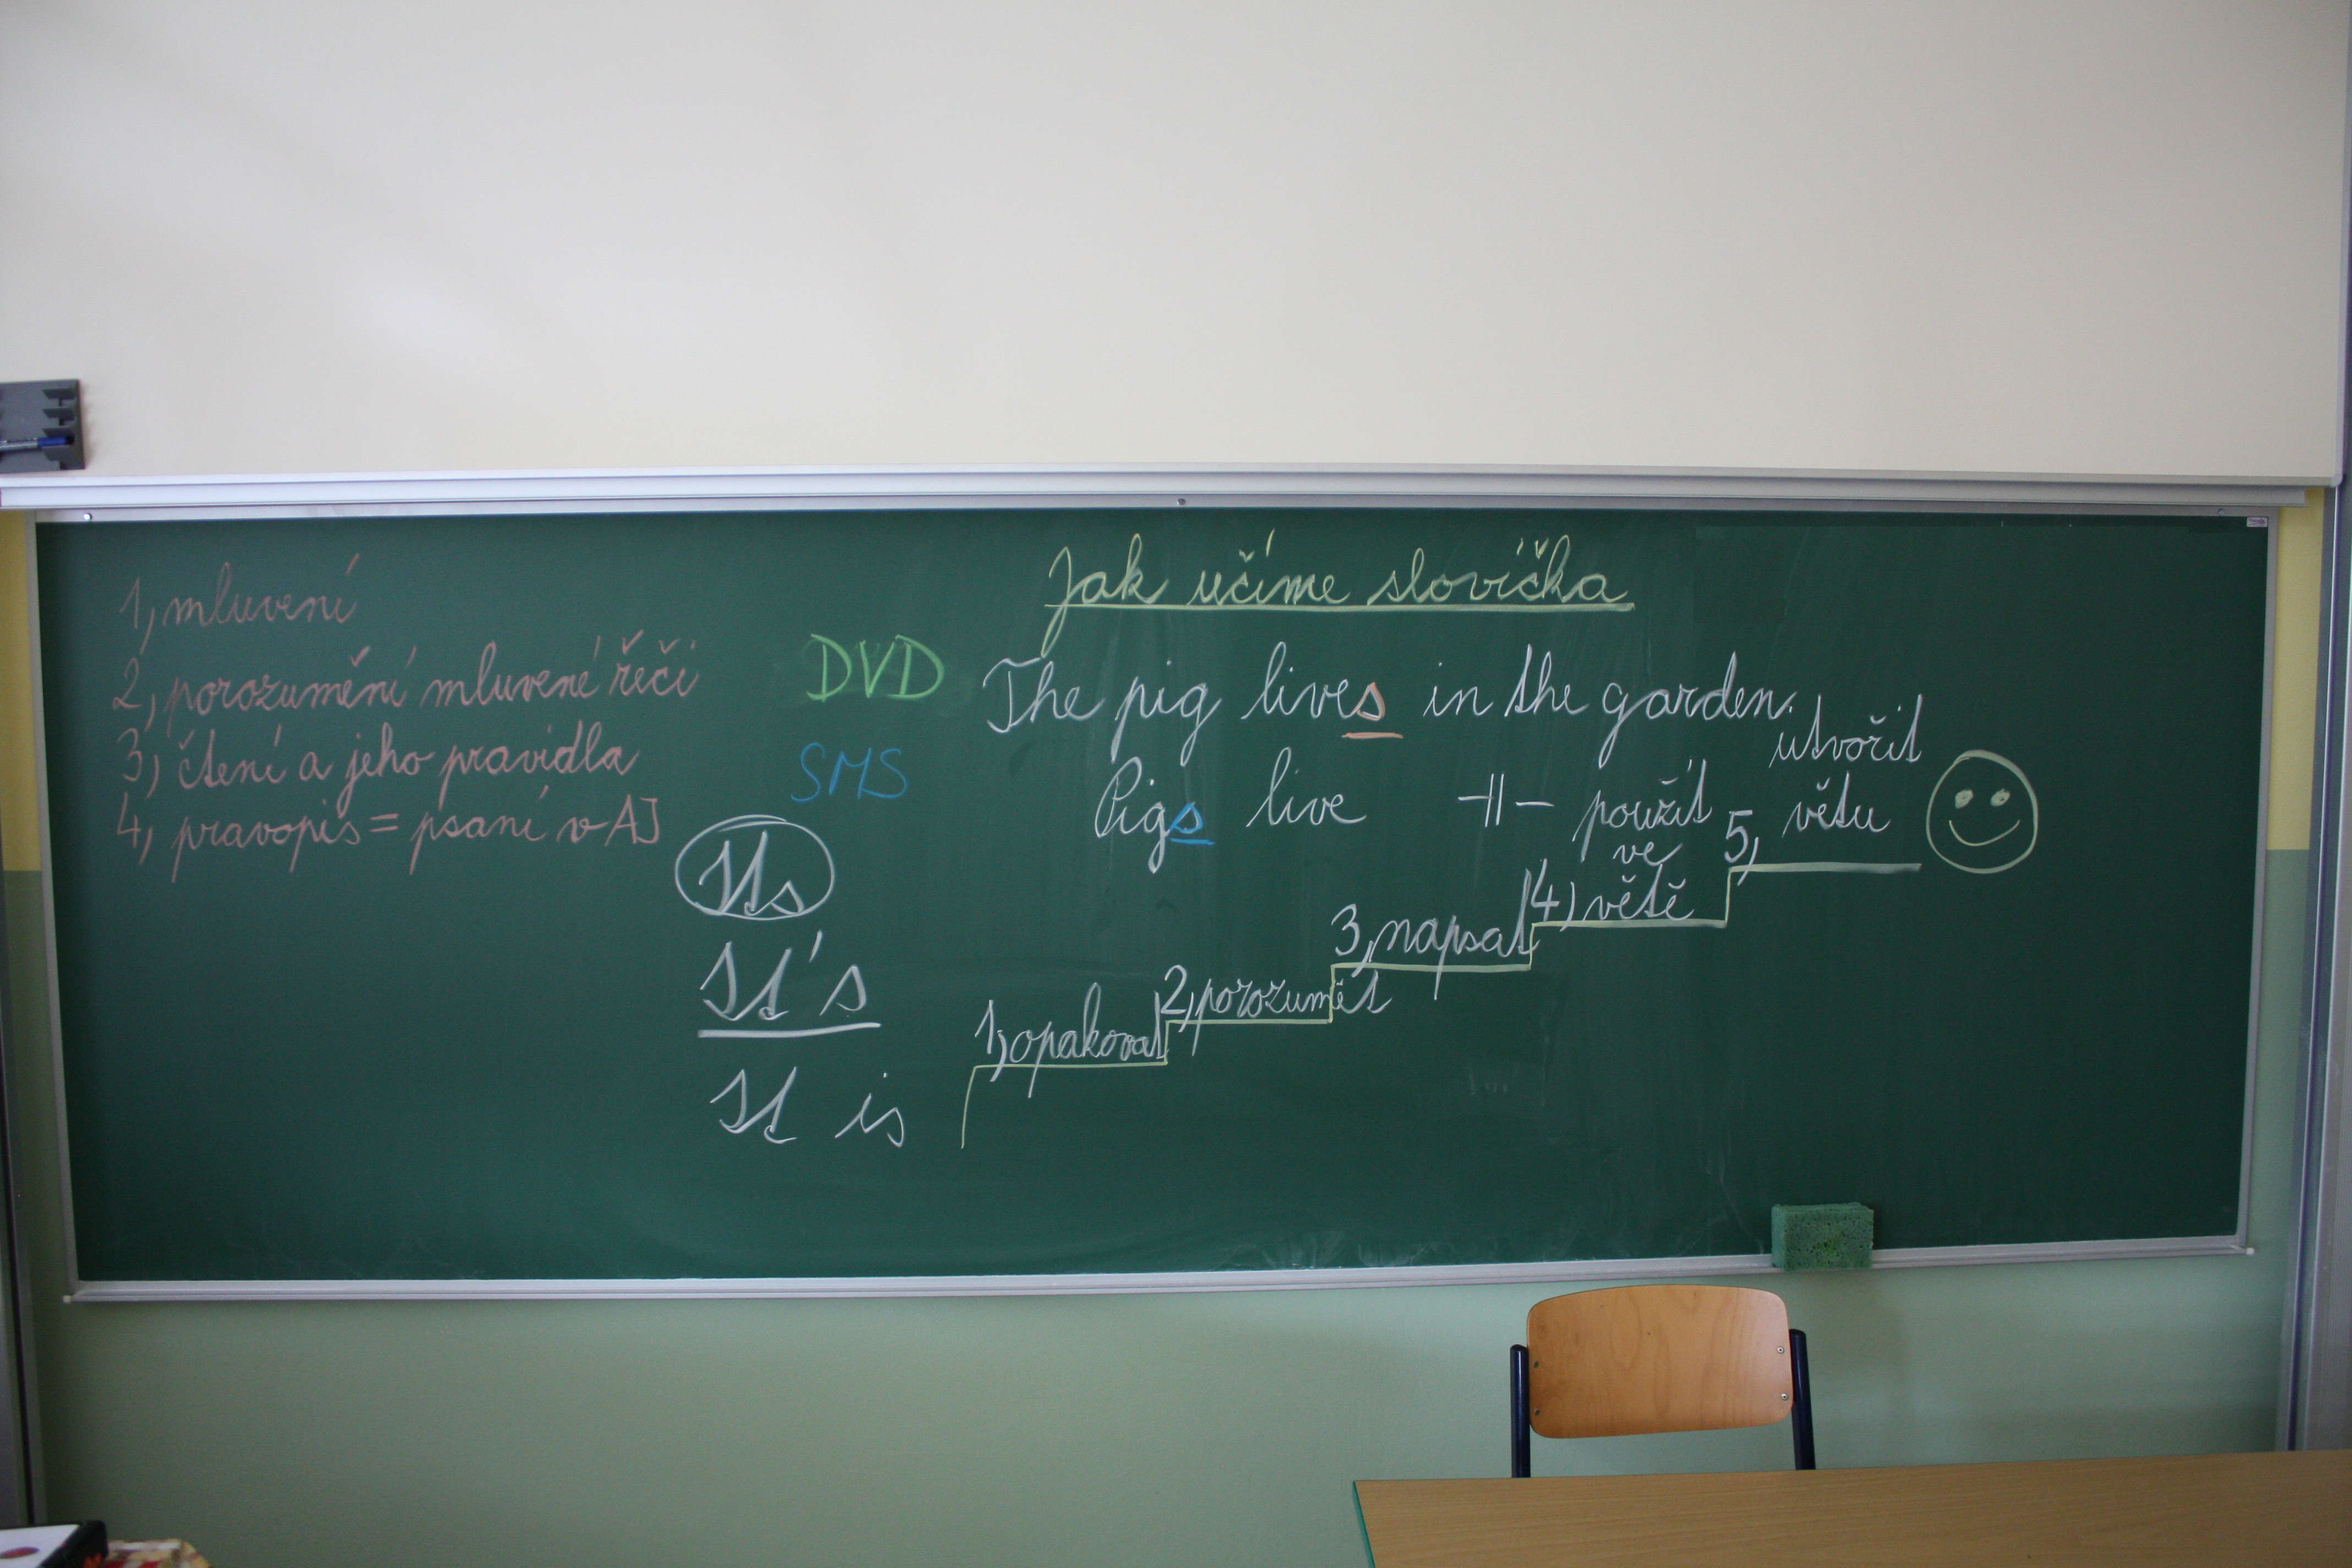 1, mluvení
2, porozumění mluvené řeči
3, čtení a jeho pravidla
4, pravopis = psaní v AJ
DVD
SMS
Its
It's
It is
Jak učíme slovíčka
The pig lives in the garden.
Pigs live -||-
1, opakovat
2, porozumět
3, napsat
4, použít
ve
větě
5, utvořit
větu